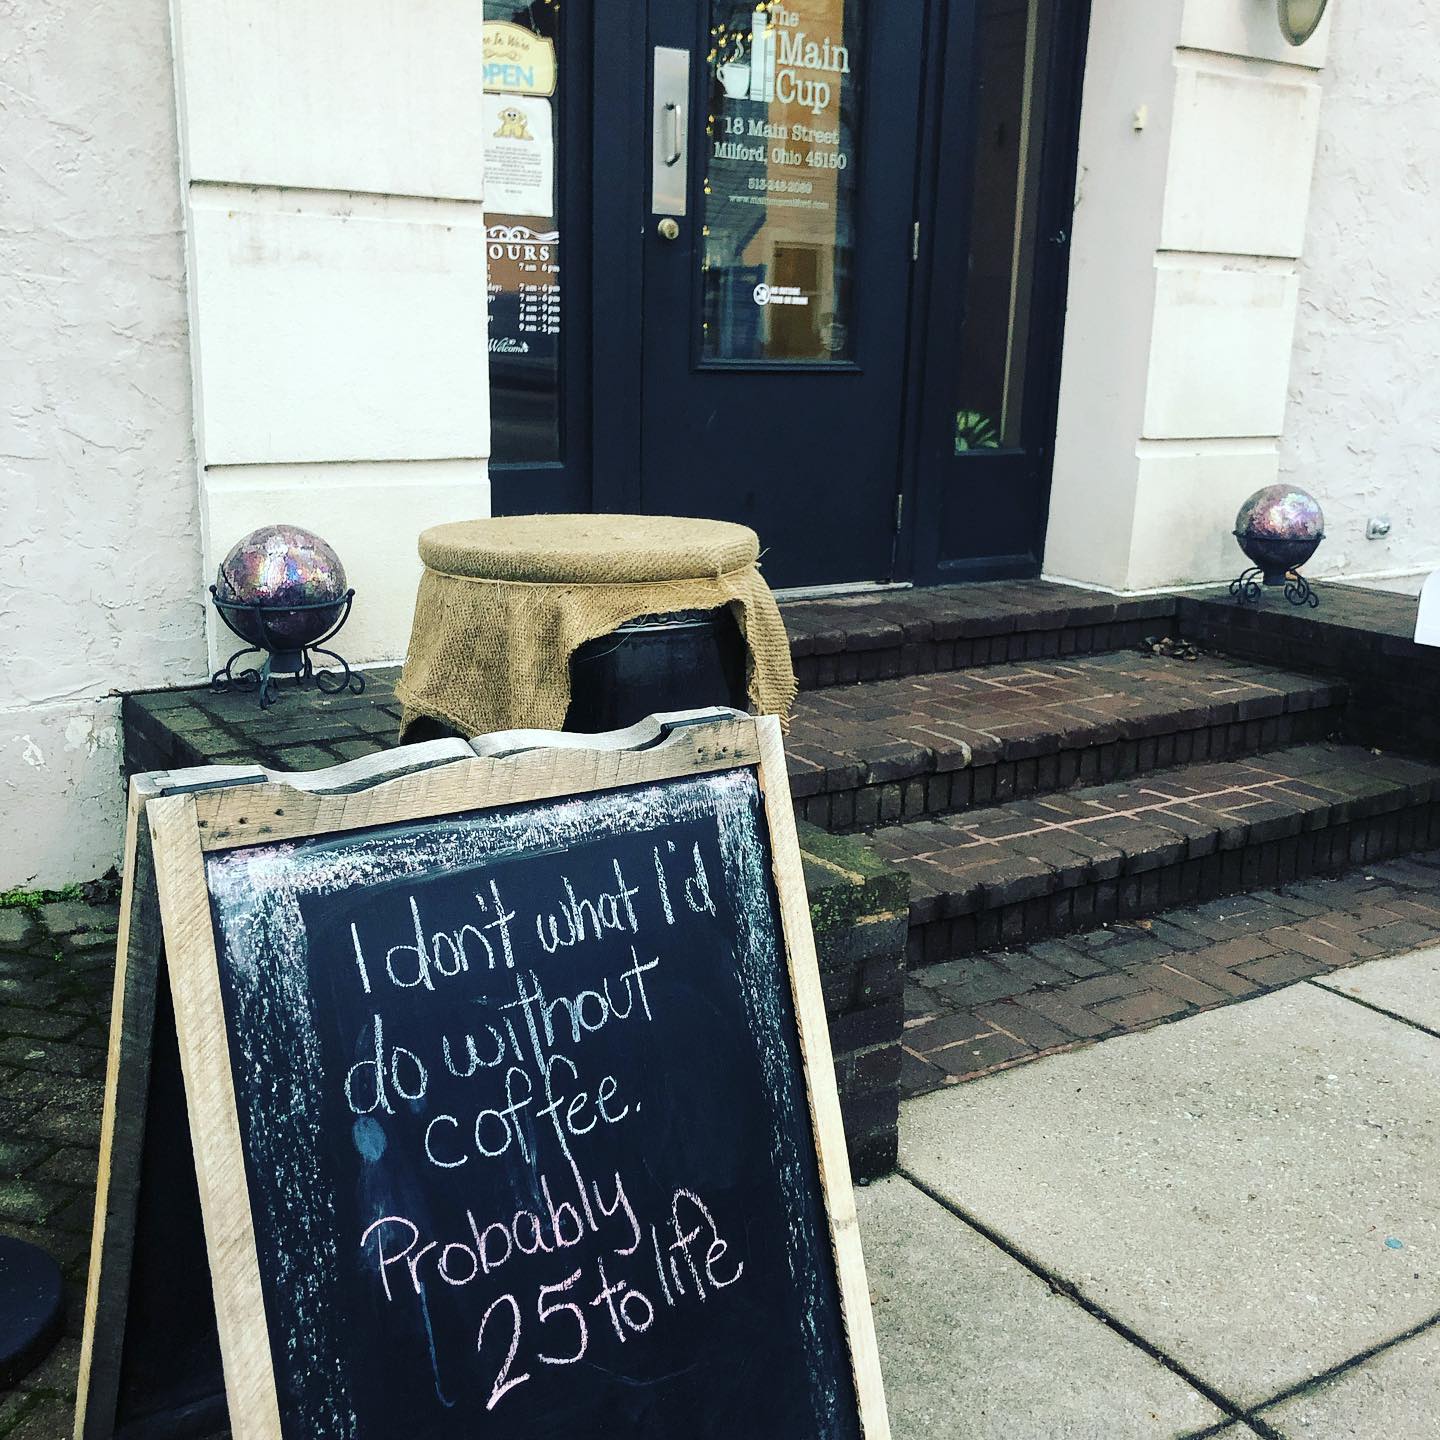 The
Main
Cup
18 Main Street
Milford, Ohio 45150
513-248-2089
OPEN
OURS
7 am - 6 pm
7 am - 6 pm
7 am - 6 pm
7 am - 9 pm
8 am - 9 pm
9 am - 2 pm
Welcome
I don't what I'd
do without
coffee.
Probably
25 to life